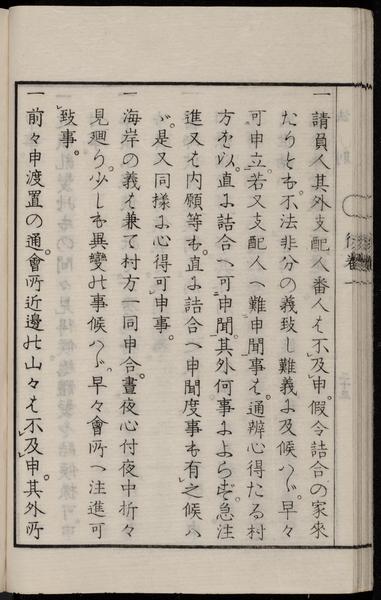 一請負人其外支配人番人は不及申。假令詰合の家來
たりとも。不法非分の義致し難義に及候はゞ。早々
可申立。若又支配人へ難申聞事は。通辨心得たる村
方を以直に詰合へ可申聞。其外何事によらず。急注
進又は内願等も。直に詰合へ申聞度事も有之候へ
ば。是又同様に心得可申事。
一海岸の義は兼て村方一同申合晝夜心付夜中折々
見廻り。少しも異變の事候はゞ。早々會所へ注進可
致事。
一前々申渡置の通。會所近邊の山々は不及申。其外所